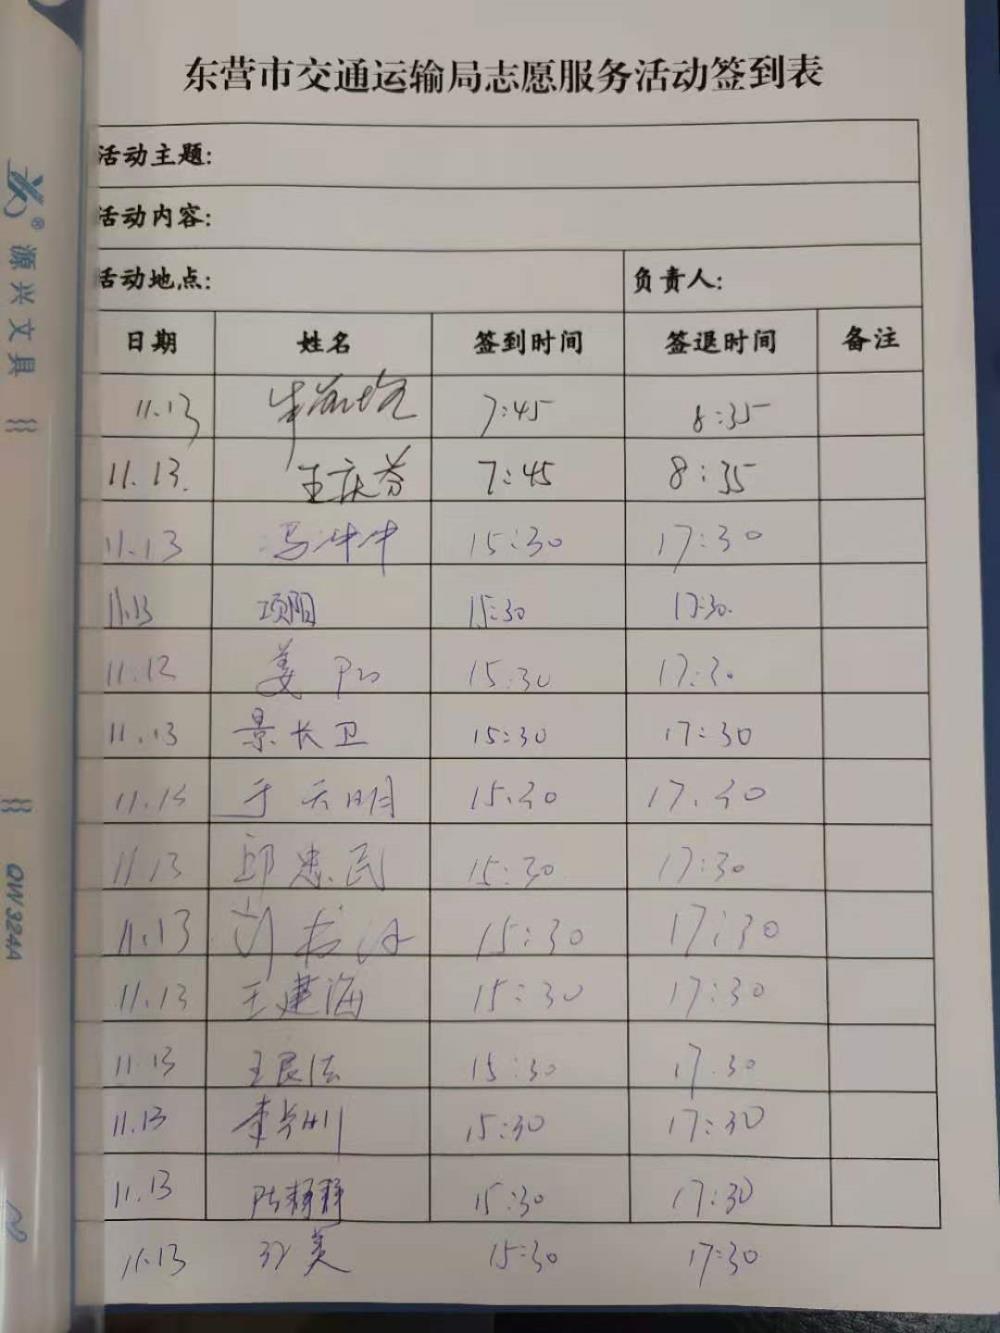 东营市交通运输局志愿服务活动签到表
活动主题:
活动内容:
活动地点: 负责人:
日期 姓名 签到时间 签退时间 备注
11.13 7:45 8:35
11.13. 王庆芬 7:45 8:35
11.13 冯冲冲 15:30 17:30
11.13 项阳 15:30 17:30.
姜 15:30 17:30
11.13 景长卫 15:30 17:30
于天明 15.30 17.30
11.13 邱忠民 15:30 17:30
11.13 15:30 17:30
11.13 王建海 15:30 17:30
11.13 王民法 15:30 17.30
11.13 15:30 17:30
11.13 陈静静 15:30 17:30
11.13 美 15:30 17:30
源兴文具
QW324A